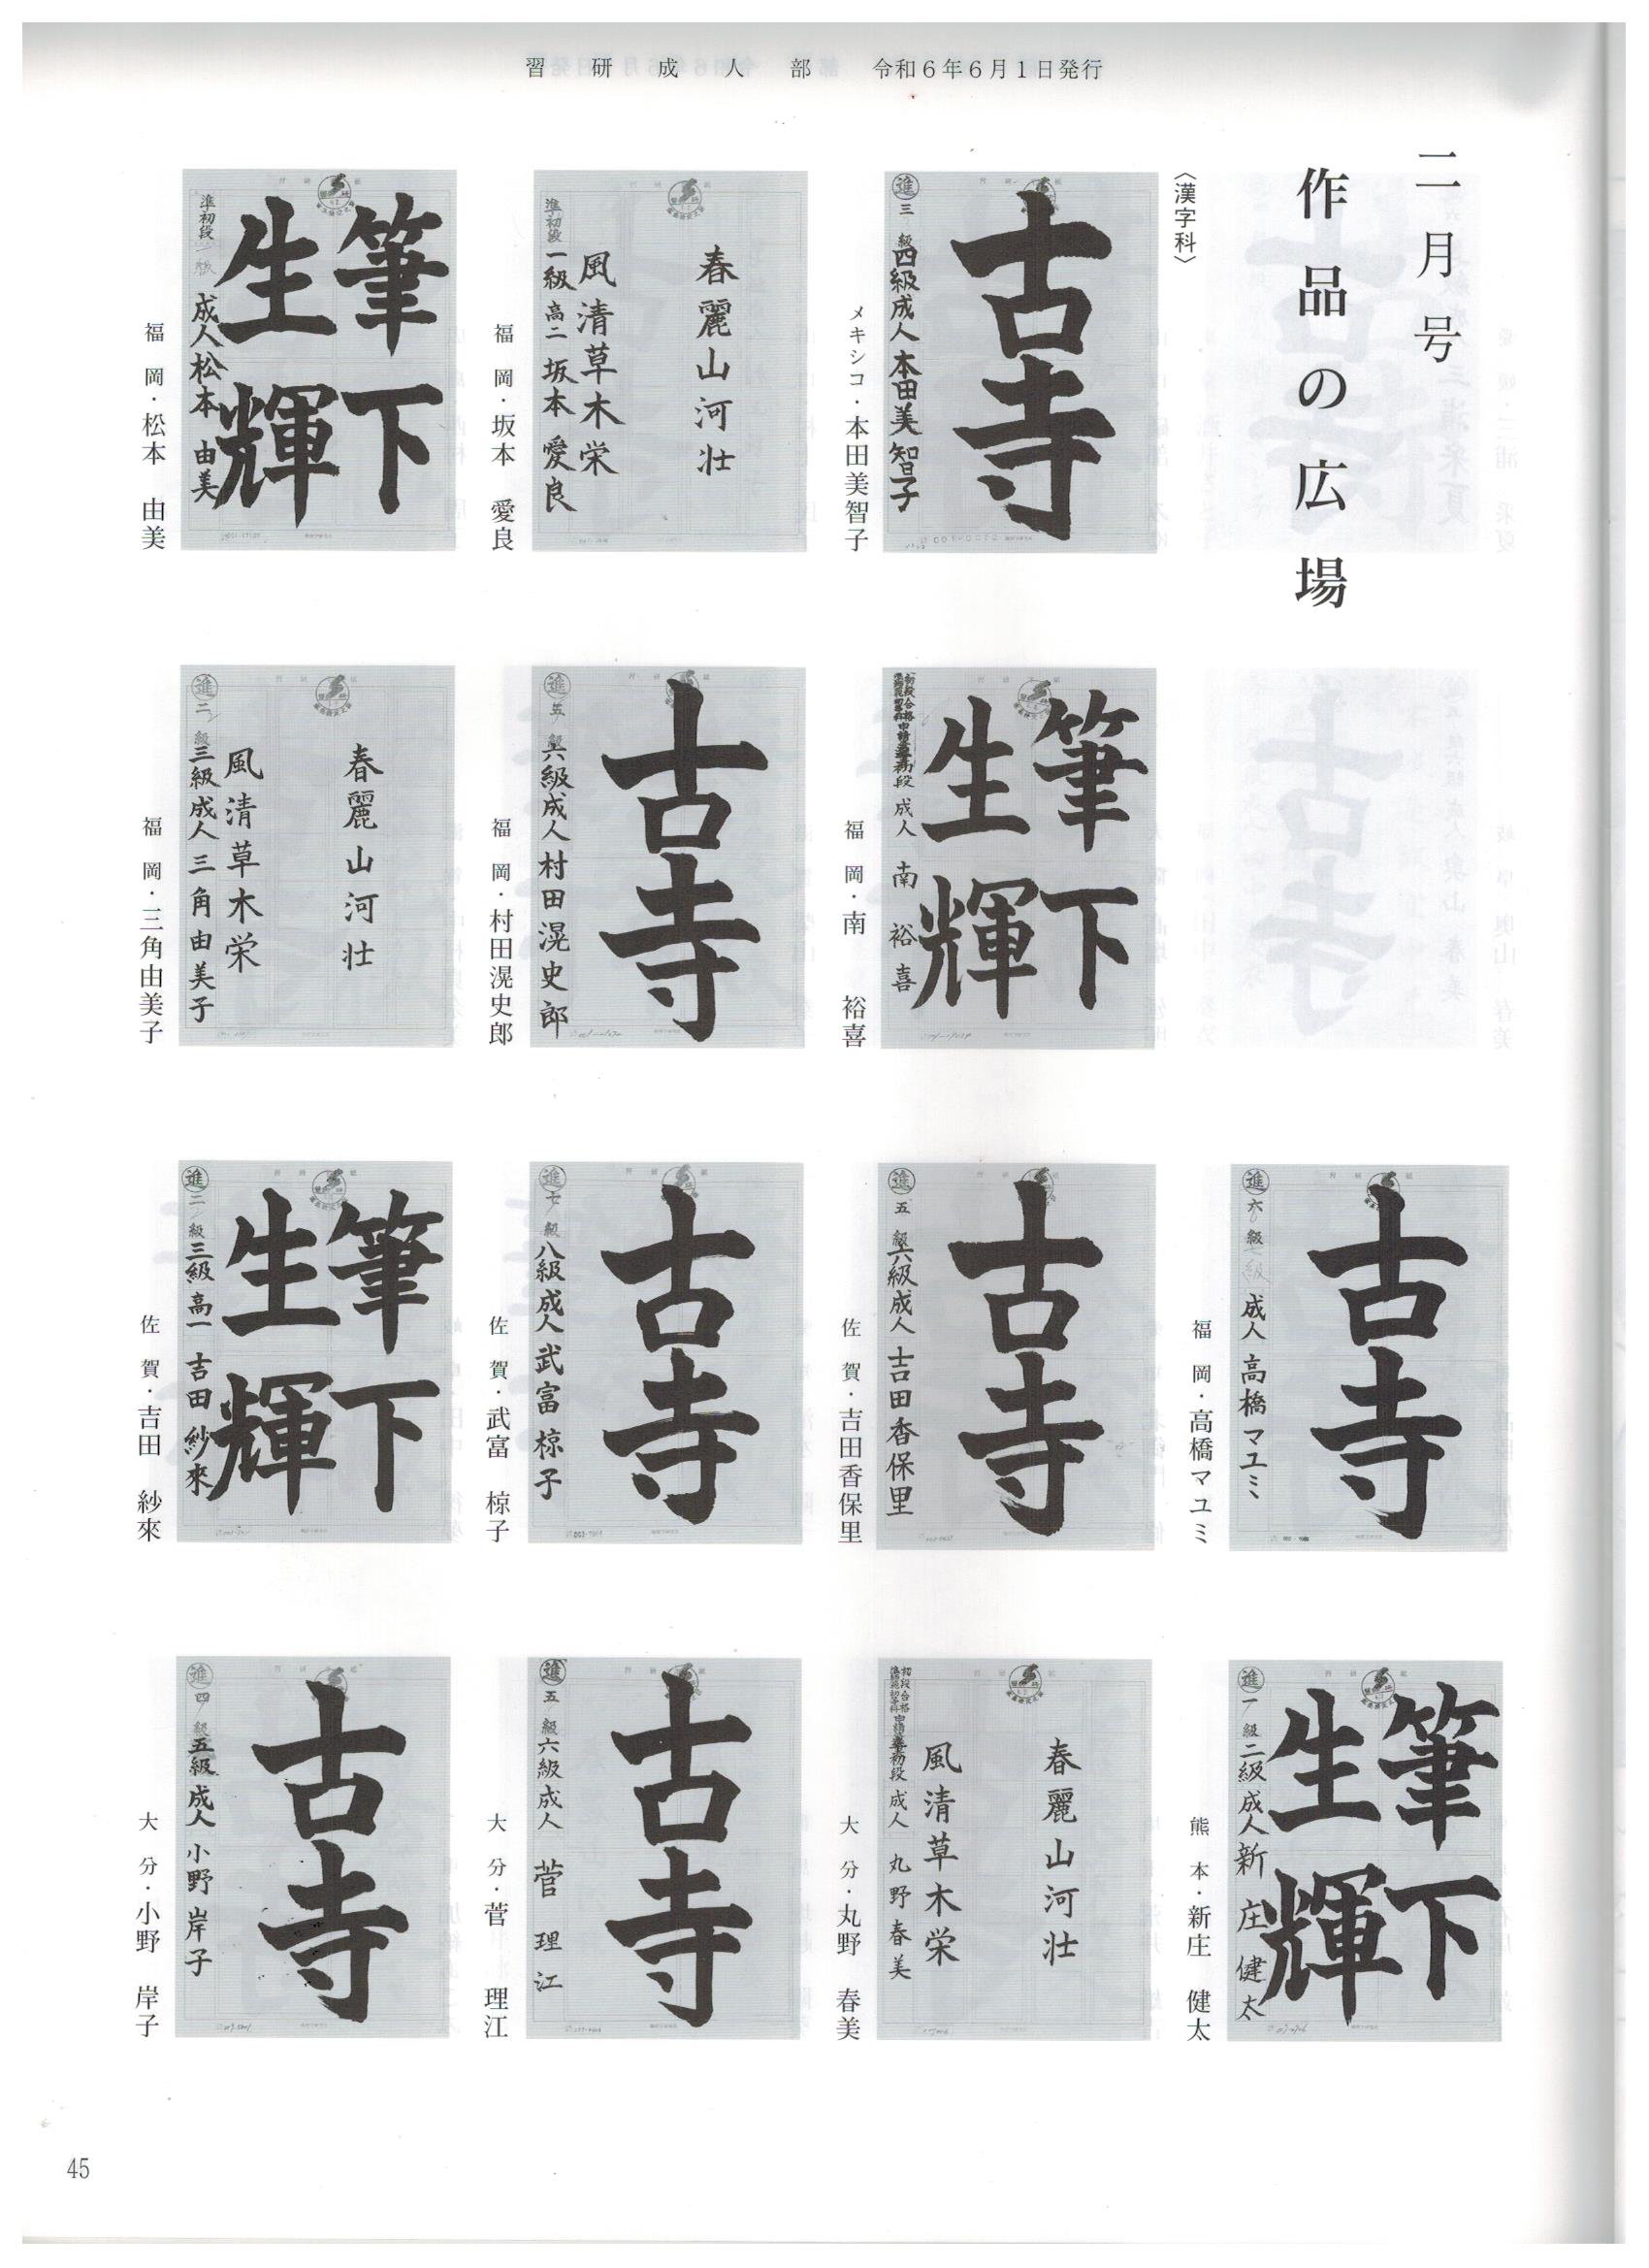 習研成人部 令和6年6月1日発行
二月号
作品の広場
〈漢字科〉
古寺
進 三 級
四級 成人 本田美智子
メキシコ・本田美智子
春麗山河壮
風清草木栄
準初段
一級 高二 坂本 愛良
福岡・坂本 愛良
筆下
生輝
準初段
成人 松本 由美
福岡・松本 由美
筆下
生輝
初段合格
成人 南 裕喜
福岡・南 裕喜
古寺
進 五 級
六級 成人 村田滉史郎
福岡・村田滉史郎
春麗山河壮
風清草木栄
進 二 級
三級 成人 三角由美子
福岡・三角由美子
古寺
進 六 級
成人 高橋マユミ
福岡・高橋マユミ
古寺
進 五 級
六級 成人 吉田香保里
佐賀・吉田香保里
古寺
進 七 級
八級 成人 武富椋子
佐賀・武富 椋子
筆下
生輝
進 二 級
三級 高一 吉田 紗來
佐賀・吉田 紗來
筆下
生輝
進 一 級
二級 成人 新庄 健太
熊本・新庄 健太
春麗山河壮
風清草木栄
初段合格
成人 丸野春美
大分・丸野 春美
古寺
進 五 級
六級 成人 菅 理江
大分・菅 理江
古寺
進 四 級
五級 成人 小野岸子
大分・小野 岸子
45